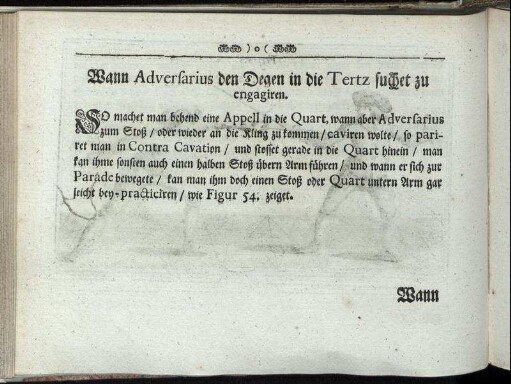 ) o (
Wann Adversarius den Degen in die Tertz suchet zu
engagiren.
SO machet man behend eine Appell in die Quart, wann aber Adversarius
zum Stoß / oder wieder an die Kling zu kommen / caviren wolte / so pari-
ret man in Contra Cavation / und stosset gerade in die Quart hinein / man
kan ihme sonsten auch einen halben Stoß übern Arm führen / und wann er sich zur
Parade bewegete / kan man ihm doch einen Stoß oder Quart untern Arm gar
leicht bey-practiciren / wie Figur 54. zeiget.
Wann